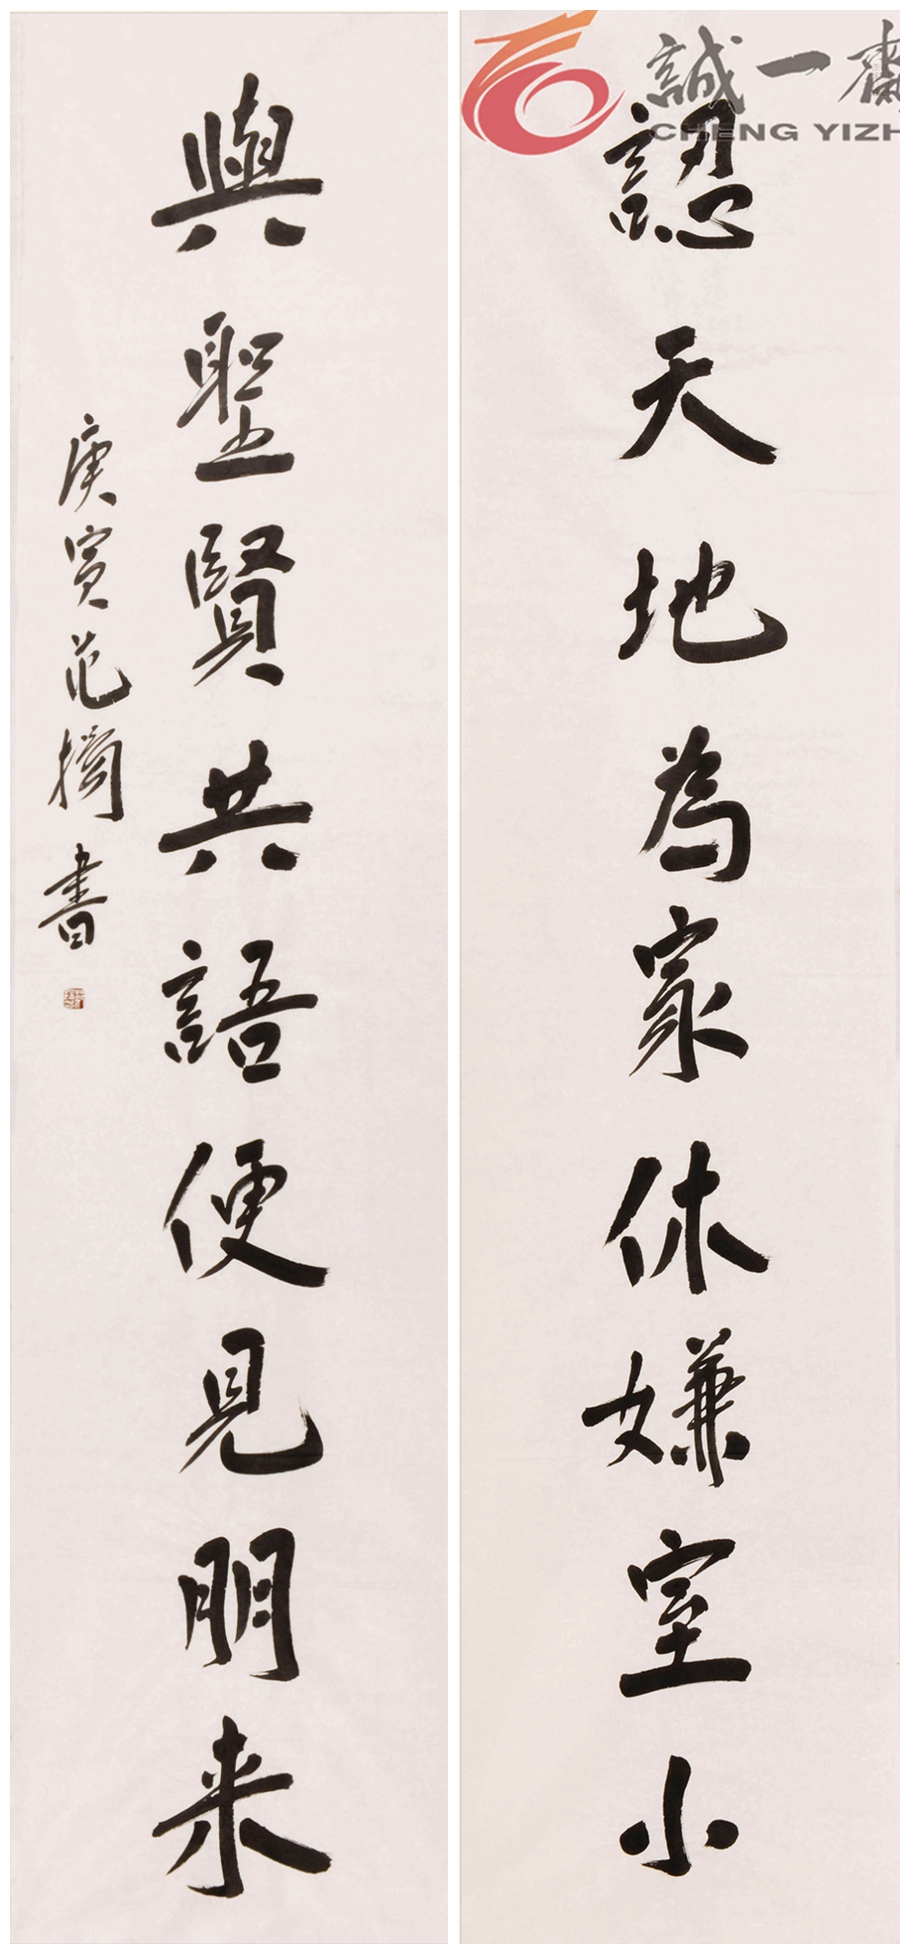 誠一齋
CHENG YIZH
認天地為家休嫌室小
與聖賢共語便見朋来
庚寅范摛書